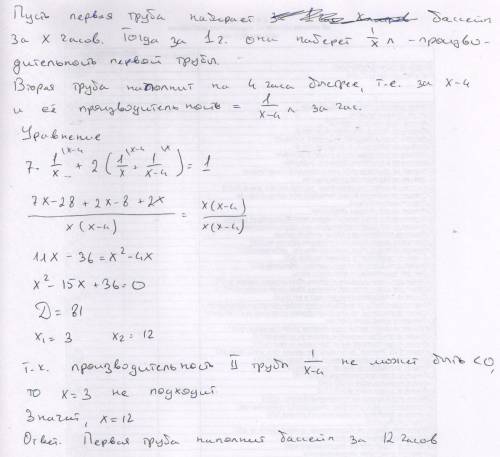 Пусть первая труба набирает бассейн
за x часов. Тогда за 1 ч. она наберет 1/x л - произво-
дительность первой трубы.
Вторая труба наполнит на 4 часа быстрее, т.е. за x-4
и её производительность = 1/(x-4) л за час.
Уравнение
7 · 1/x + 2 (1/x + 1/(x-4)) = 1
(7x-28 + 2x-8 + 2x)/(x(x-4)) = x(x-4)/(x(x-4))
11x - 36 = x² - 4x
x² - 15x + 36 = 0
D = 81
x₁ = 3 x₂ = 12
т.к. производительность II трубы 1/(x-4) не может быть <0,
то x = 3 не подходит
Значит, x = 12
Ответ. Первая труба наполнит бассейн за 12 часов